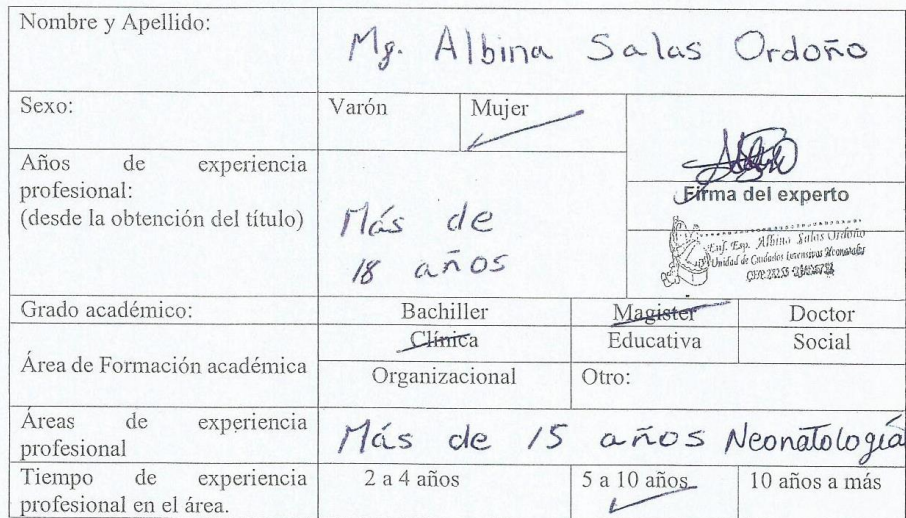 Nombre y Apellido:
Mg. Albina Salas Ordoño
Sexo:
Varón
Mujer
Años de experiencia
profesional:
(desde la obtención del título)
Más de
18 años
Firma del experto
Enf. Esp. Albina Salas Ordoño
Unidad de Cuidados Intensivos Neonatales
Grado académico:
Bachiller
Magister
Doctor
Área de Formación académica
Clínica
Educativa
Social
Organizacional
Otro:
Áreas de experiencia
profesional
Más de 15 años Neonatología
Tiempo de experiencia
profesional en el área.
2 a 4 años
5 a 10 años
10 años a más